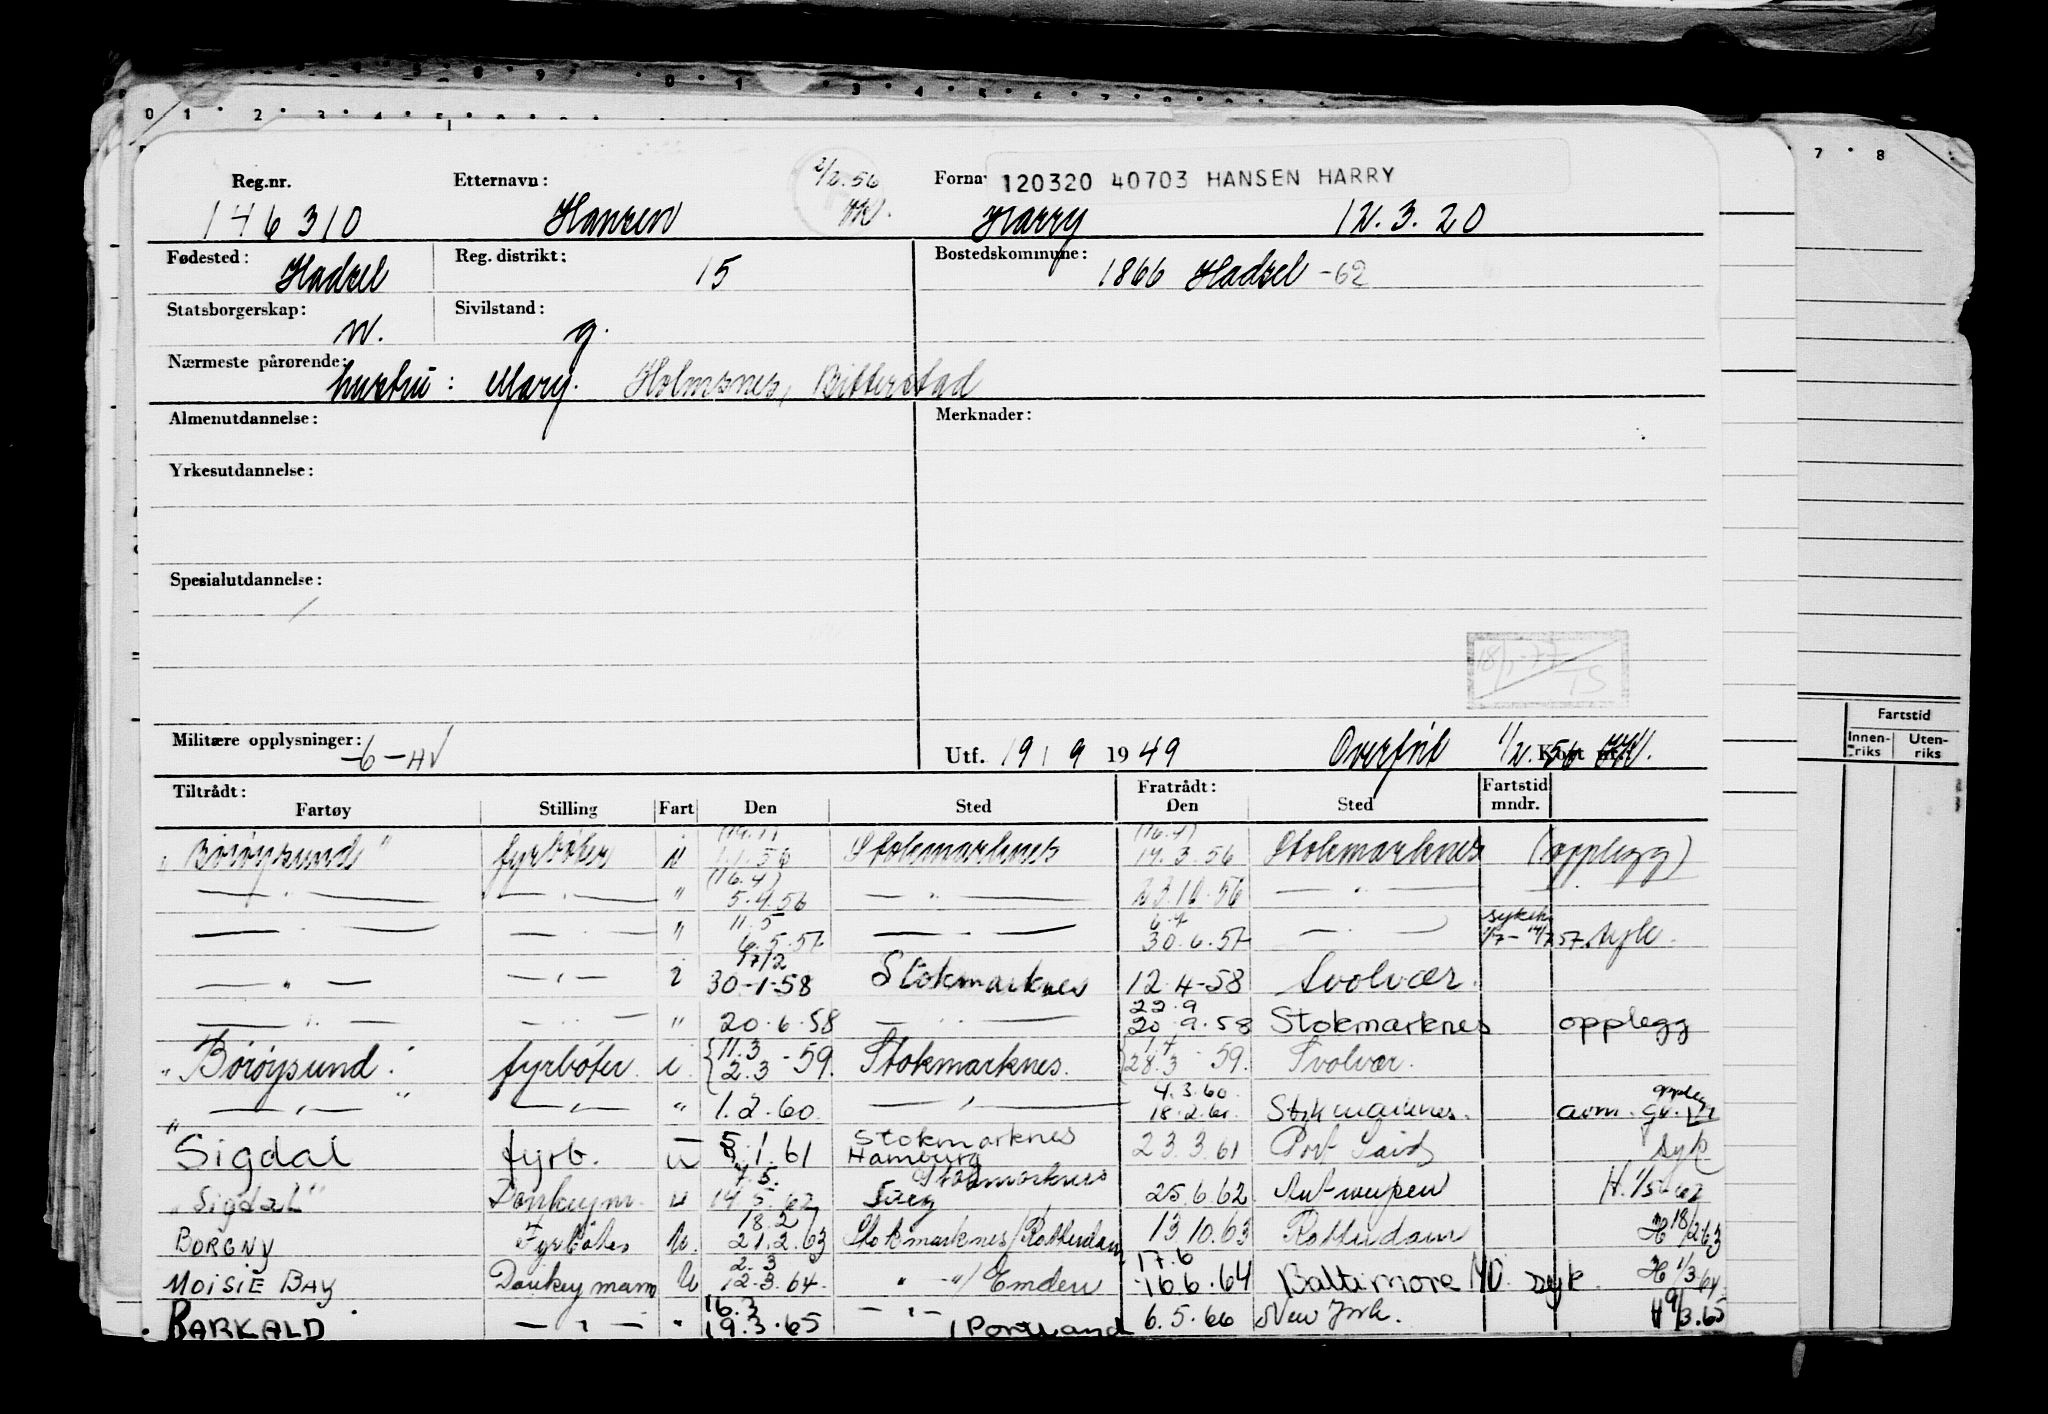 0 1 2 3 4 5
7 8
Reg.nr. Etternavn: 2/2.56 Forna 120320 40703 HANSEN HARRY
146310 Hansen Harry 12.3.20
Fødested: Hadsel Reg. distrikt: 15 Bostedskommune: 1866 Hadsel -62
Statsborgerskap: n. Sivilstand: g.
Nærmeste pårørende: hustru: Mary. Holmsnes, Bitterstad
Almenutdannelse: Merknader:
Yrkesutdannelse:
Spesialutdannelse:
18/1-77 TS
Militære opplysninger: -6-HV Utf. 19/9 1949 Overført 1/2.56 Kort
Fartstid
Innenriks Utenriks
Tiltrådt: Fratrådt: Fartstid
Fartøy Stilling Fart Den Sted Den Sted mndr.
"Børøysund" fyrbøter (14.1) 1.1.56 Stokmarknes (16.4) 14.3.56 Stokmarknes (opplegg)
— " — — " — " (16.4) 5.4.56 — " — 23.10.56 — " —
— " — — " — " 11.5 6.5.57 — " — 30.6.57 — " — sykeh 1/7-14/7 57 syk.
— " — — " — i 17/2 30-1-58 Stokmarknes 12.4-58 Svolvær.
— " — — " — " 20.6.58 — " — 22.9 20.9.58 Stokmarknes opplegg
"Børøysund" fyrbøter. i. {11.3 2.3 -59. Stokmarknes. {1.4 28.3 -59. Svolvær.
— " — — " — " 1.2.60. — " — 4.3.60. 18.2.60. Stokmarknes. oppleg
Sigdal fyrb. u 5.1.61 Stokmarknes Hamburg 23.3.61 Port Said syk
"Sigdal" Donkeym. u 7.5. 14.5.62 Stokmarknes 25.6.62. Antwerpen H. 1/5-62
BORGNY Fyrbøter U. 18.2 21.2.63 Stokmarknes/Rotterdam 13.10.63 Rotterdam H 18/2 63
MOISIE BAY Donkeymann U 2.3 12.3.64. " -"/ Emden 17.6 16.6.64 Baltimore MD. syk. H 1/3 64.
BARKALD — " — " 16.3 19.3.65 — " — / Portland 6.5.66 New York. H 9/3.65